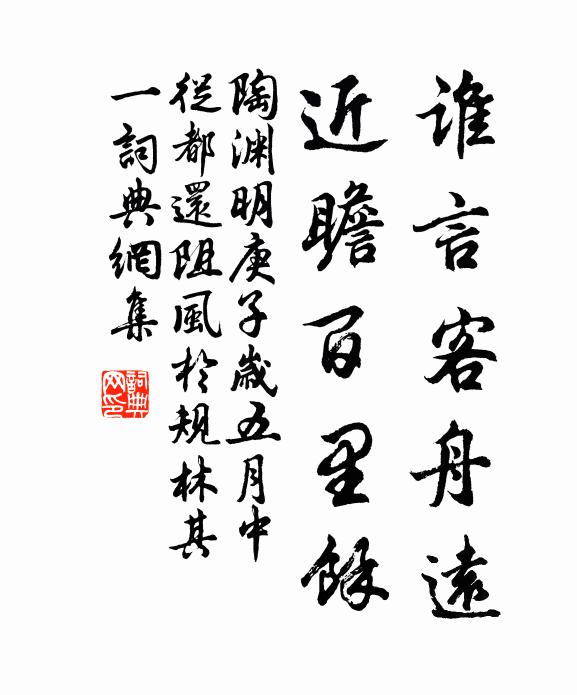 谁言客舟遠
近瞻百里餘
陶渊明庚子歲五月中
從都還阻風於規林其
一詞典網集
詞典
网印